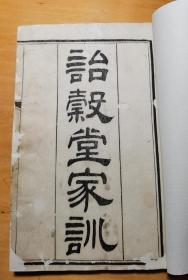 詒穀堂家訓